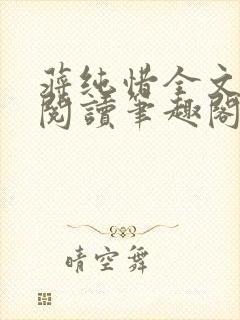 蔣純惜全文
閱讀筆趣閣
晴空舞